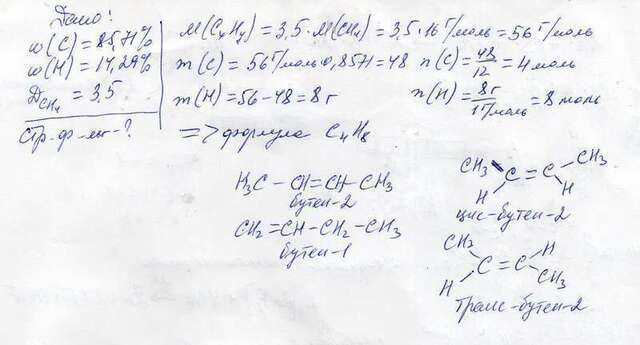 Дано:
ω(C)=85,71%
ω(H)=14,29%
D CH₄ = 3,5
Стр. ф-лы-?
M(CₓHᵧ)=3,5·M(CH₄)=3,5·16 г/моль=56 г/моль
m(C)=56 г/моль·0,8571=48 n(C)=48/12=4 моль
m(H)=56-48=8 г n(H)=8г/1г/моль=8 моль
=> формула C₄H₈
H₃C-CH=CH-CH₃
бутен-2
CH₂=CH-CH₂-CH₃
бутен-1
CH₃ C=C CH₃
H H
цис-бутен-2
CH₃ H
C=C
H CH₃
Транс-бутен-2